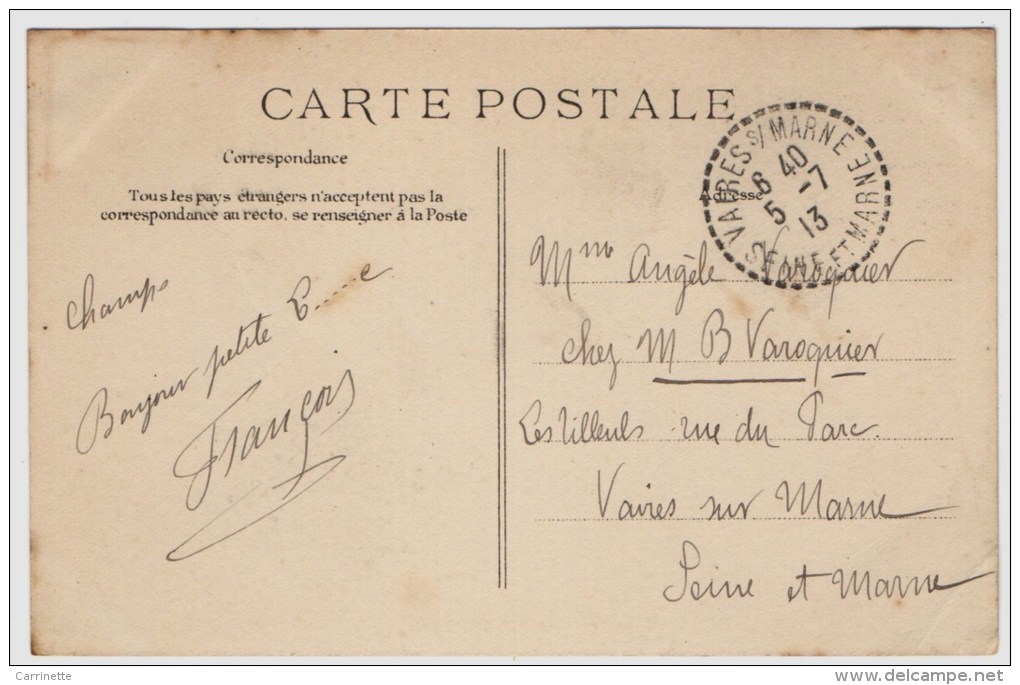 CARTE POSTALE
Correspondance
Tous les pays étrangers n'acceptent pas la
correspondance au recto, se renseigner á la Poste
Champs
Bonjour petite L.....e
François
Adresse
VAIRES S/ MARNE
6 40
5 -7
13
SEINE ET MARNE
Mme Angèle Varoquier
chez M B Varoquier
Les Tilleuls rue du Parc
Vaires sur Marne
Seine et Marne
Carrinette
delcampe.net